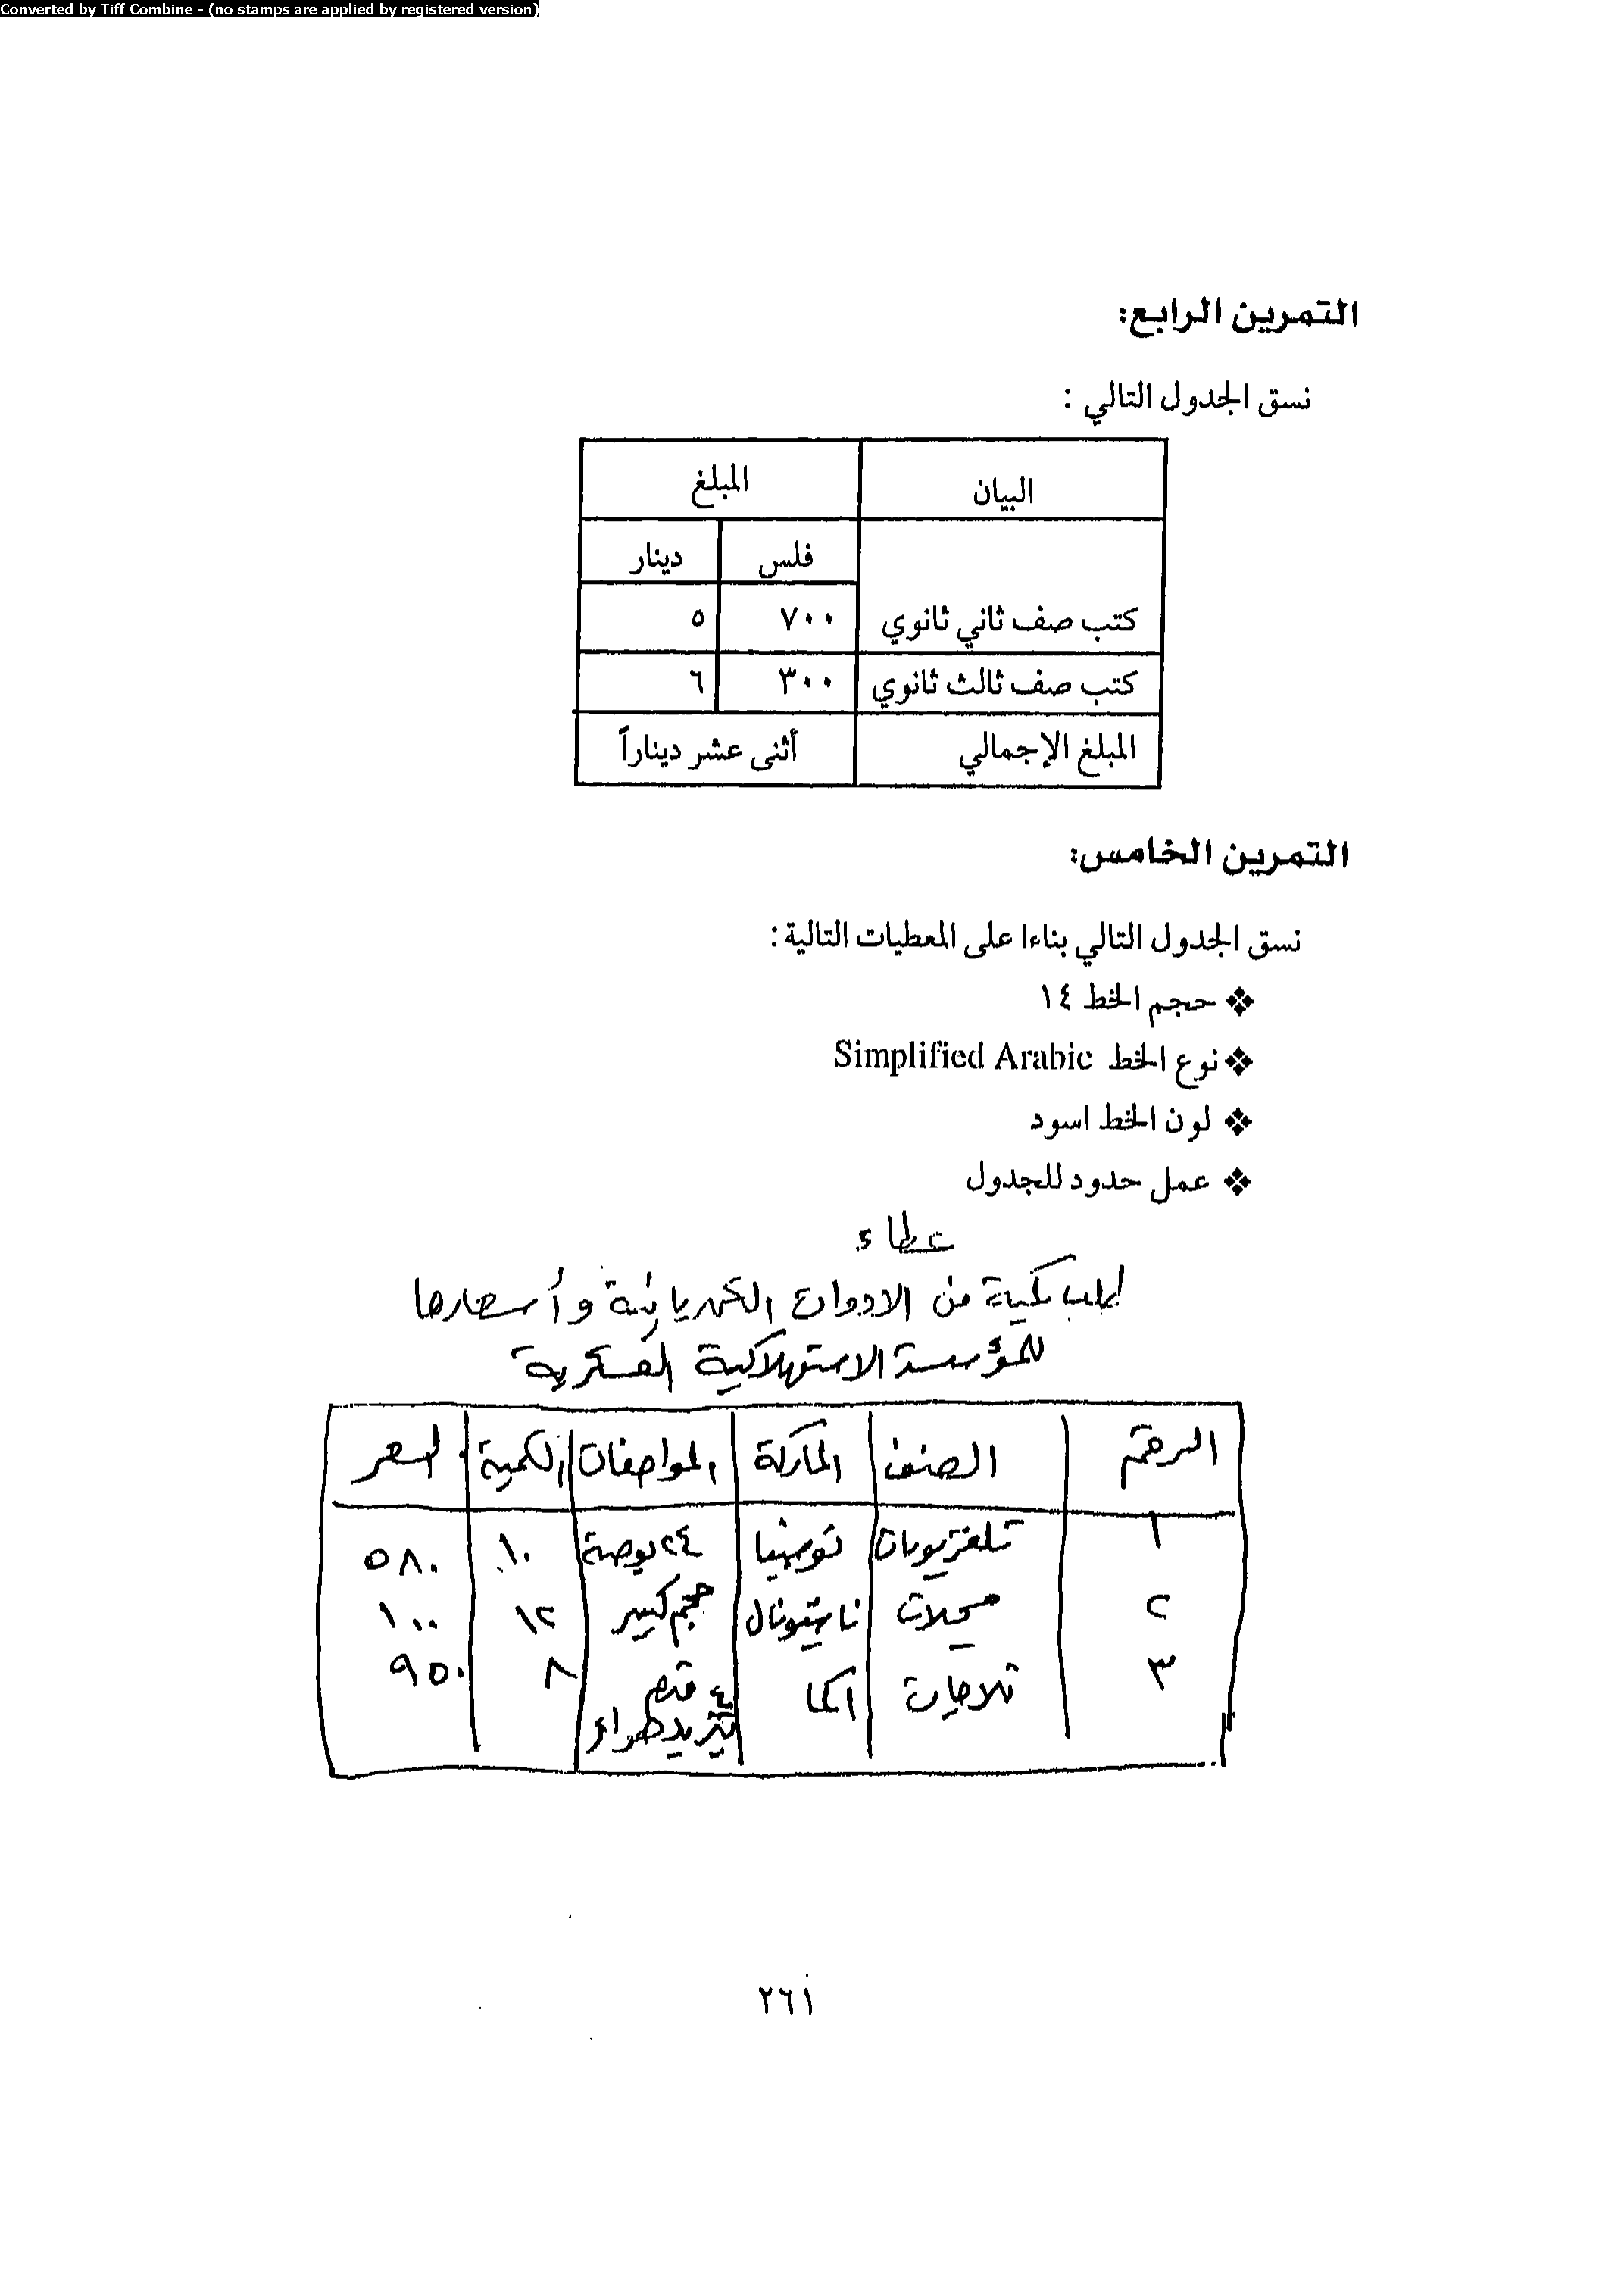 Converted by Tiff Combine - (no stamps are applied by registered version)
التمرين الرابع:
نسق الجدول التالي :
البيان المبلغ
فلس دينار
كتب صف ثاني ثانوي ٧٠٠ ٥
كتب صف ثالث ثانوي ٣٠٠ ٦
المبلغ الإجمالي أثنى عشر ديناراً
التمرين الخامس:
نسق الجدول التالي بناءا على المعطيات التالية :
❖ حجم الخط ١٤
❖ نوع الخط Simplified Arabic
❖ لون الخط اسود
❖ عمل حدود للجدول
عطاء
لطلب كمية من الادوات الكهربائية وأسعارها
للمؤسسة الاستهلاكية العسكرية
الرقم الصنف الماركة المواصفات الكمية السعر
١ تلفزيونات توشيبا ٢٤ بوصة ١٠ ٥٨٠
٢ مسجلات ناشيونال حجم كبير ١٢ ١٠٠
٣ ثلاجات اكما ٤ قدم ٨ ٩٥٠
تبريد هواء
٢٦١